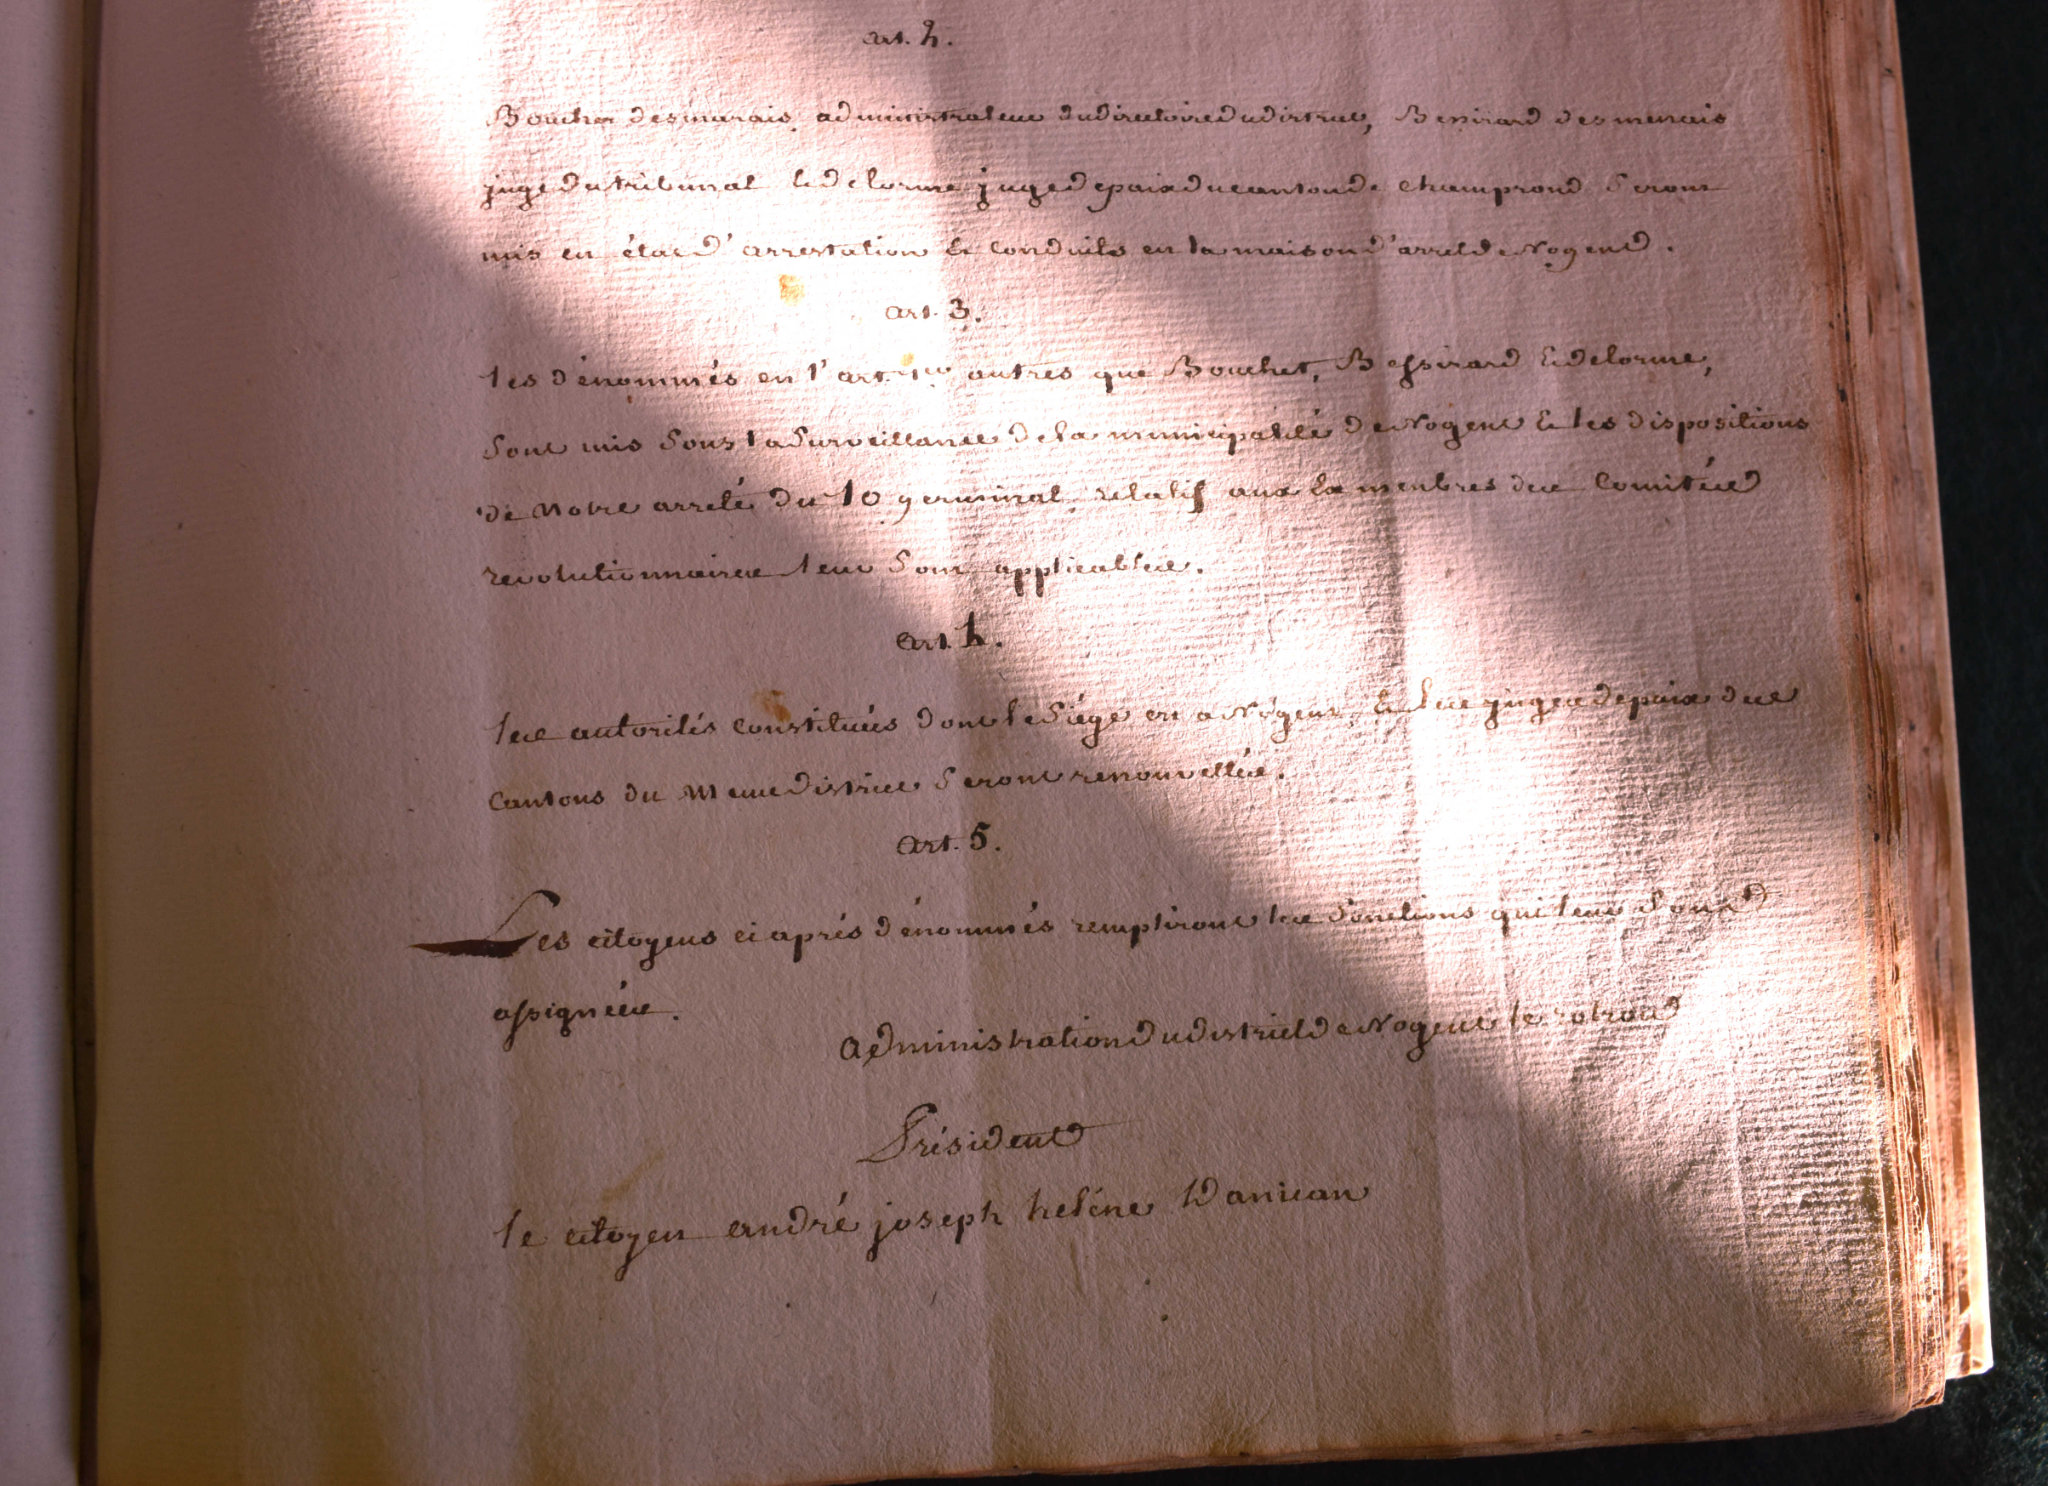 art. 2.
Boucher desmarais, administrateur du directoire du district, Bessirard desmenais
juge du tribunal & delorme juge de paix du canton de champrond Seront
mis en état d'arrestation & conduits en la maison d'arret de Nogend.
art. 3.
les dénommés en l'art. 1er autres que Bouchet, Bessirard & delorme,
Sont mis Sous la Surveillance de la municipalité de Nogent & les dispositions
de Notre arreté du 10 germinal relatif aux membres des Comités
revolutionnaires leur Sont applicables.
art. 4.
les autorités constituées dont le Siége est a Nogent & les juges de paix des
Cantons du Meme district Seront renouvellés.
art. 5.
Les citoyens ci aprés dénommés rempliront les fonctions qui leur Sont
assignées.
administration du district de Nogent le rotrou
Président
le citoyen andré joseph heléne Danican